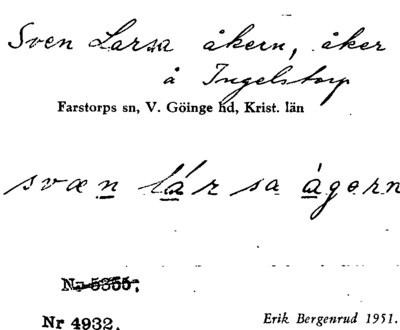 Sven Larsa åkern, åker
å Ingelstorp
Farstorps sn, V. Göinge hd, Krist. län
svæn lársa ågern
No 5355.
Nr 4932.
Erik Bergenrud 1951.